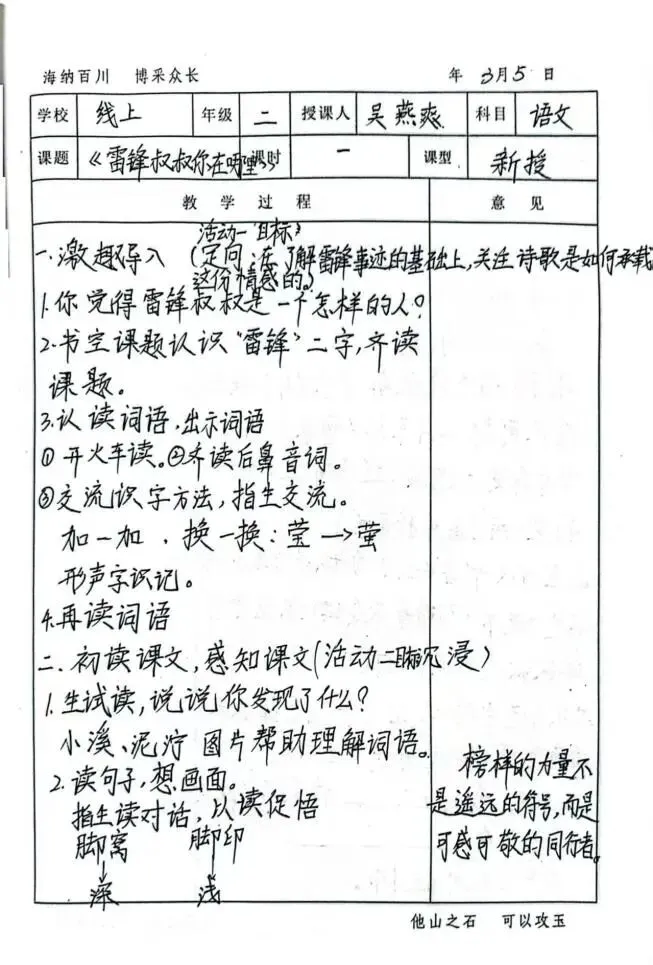 海纳百川 博采众长 年 3月5日
学校 线上 年级 二 授课人 吴燕爽 科目 语文
课题 《雷锋叔叔你在哪里》 课时 一 课型 新授
教学过程 意见
活动一“目标》
一.激趣导入(定向:在了解雷锋事迹的基础上,关注诗歌是如何承载
这份情感的。)
1.你觉得雷锋叔叔是一个怎样的人?
2.书空课题认识“雷锋”二字,齐读
课题。
3.认读词语,出示词语
①开火车读。②齐读后鼻音词。
③交流识字方法,指生交流。
加一加.换一换:莹→萤
形声字识记。
4.再读词语
二.初读课文,感知课文(活动二目标沉浸)
1.生试读,说说你发现了什么?
小溪、泥泞 图片帮助理解词语。
2.读句子,想画面。
指生读对话,以读促悟
脚窝 脚印
↓ ↓
深 浅
榜样的力量不
是遥远的符号,而是
可感可敬的同行者。
他山之石 可以攻玉